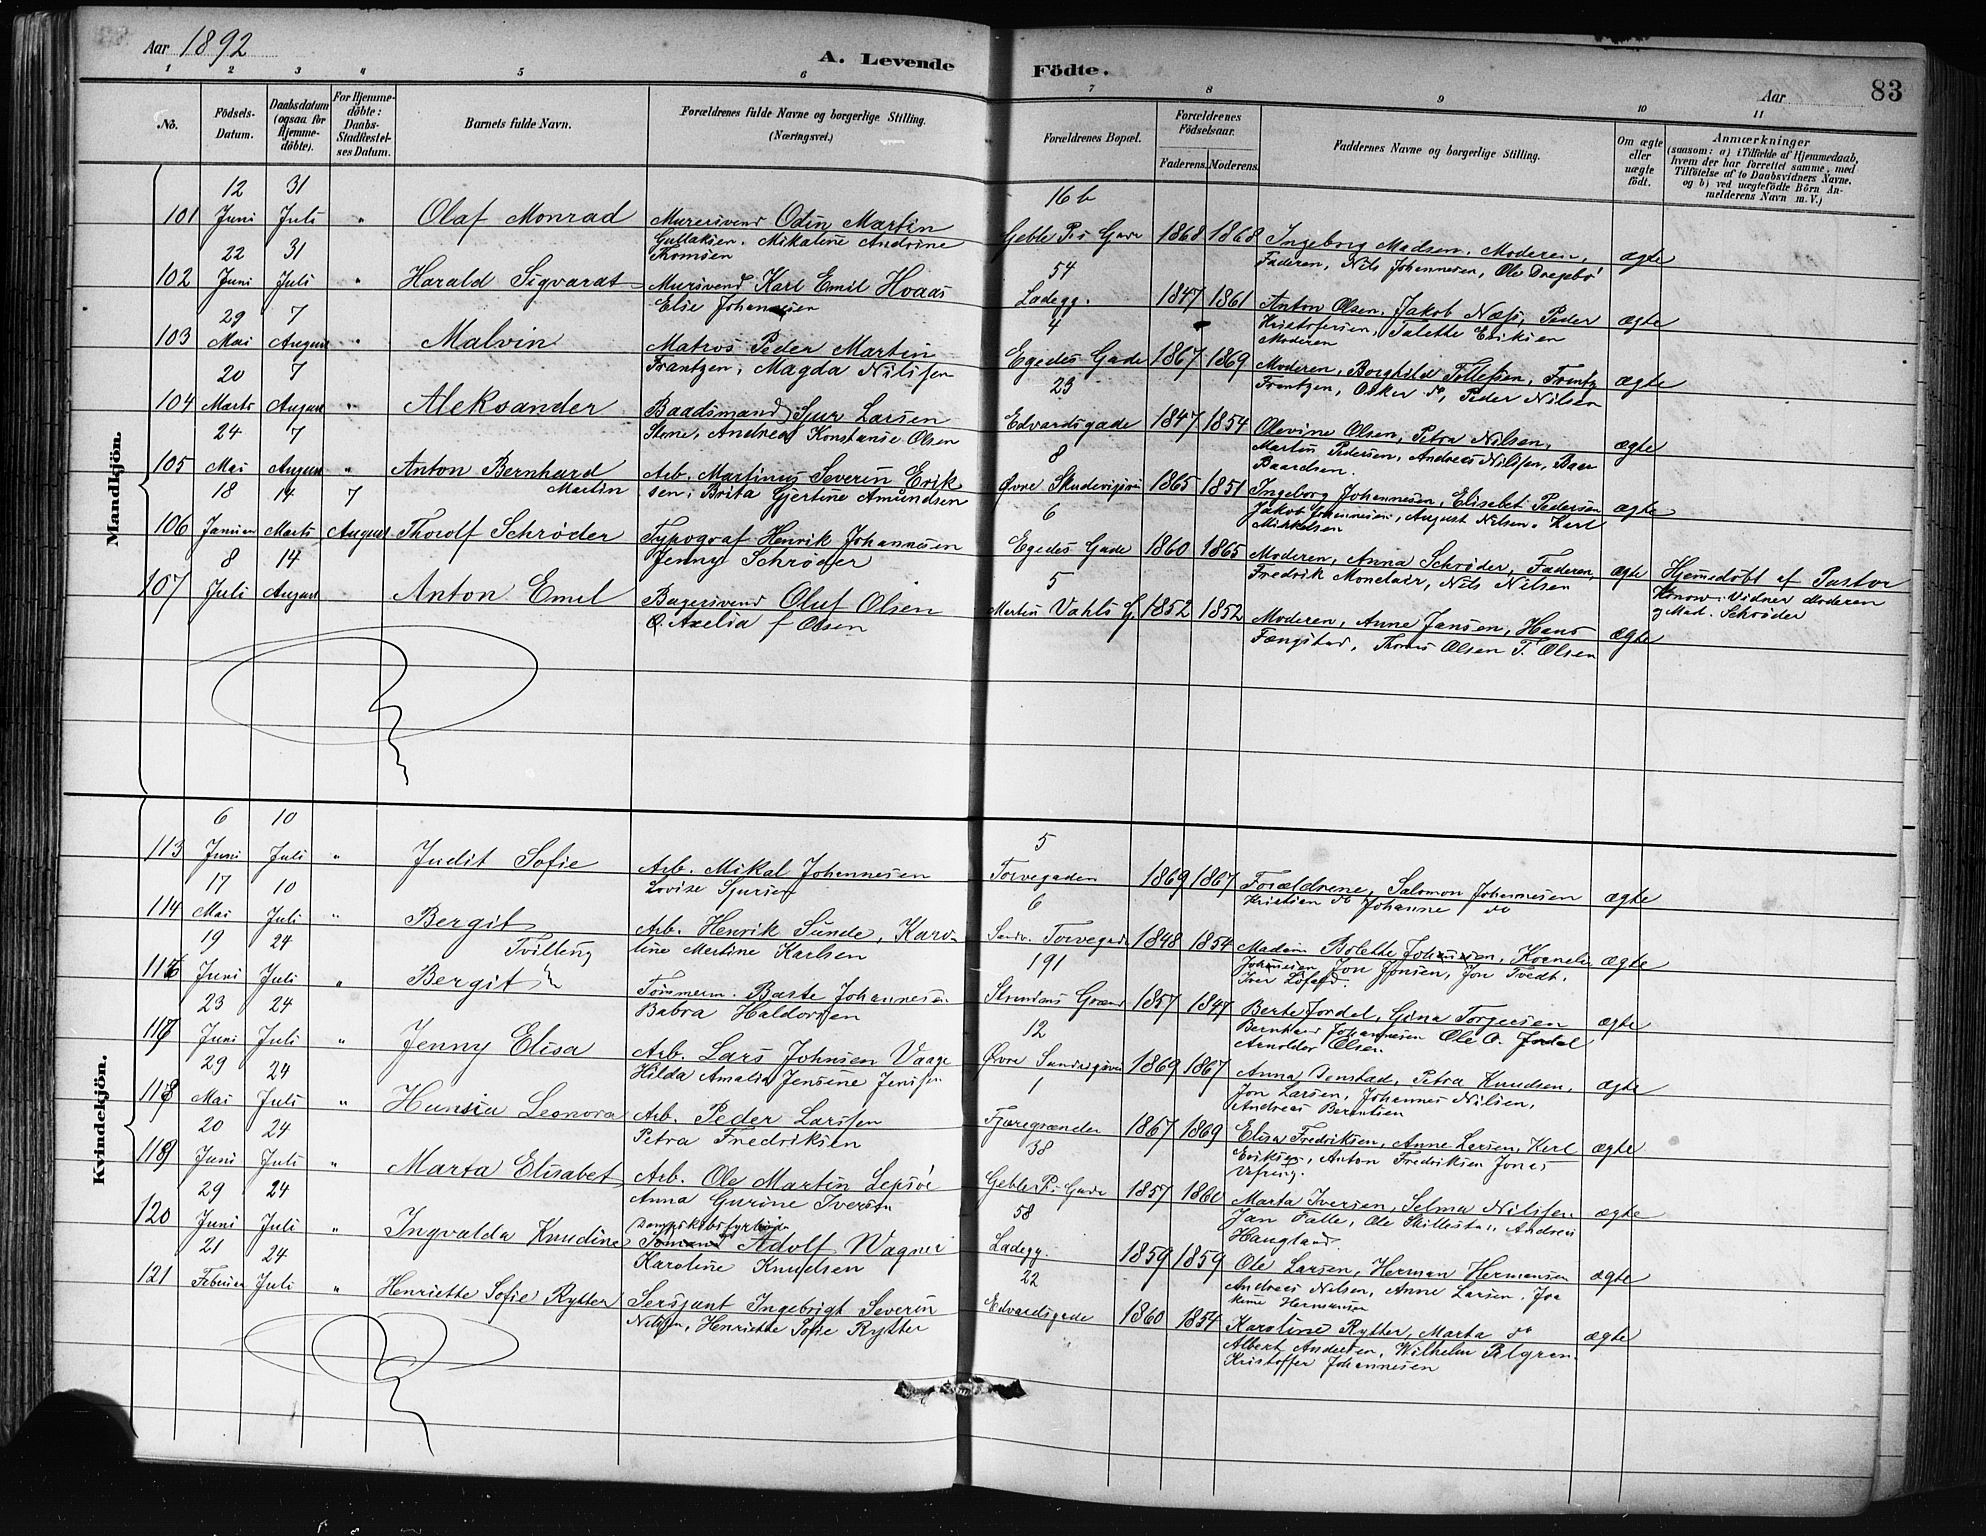 Aar 1892
A. Levende Fødte.
Aar 83
1 2 3 4 5 6 7 8 9 10 11
No.
Födsels-Datum.
Daabsdatum (ogsaa for Hjemme-döbte).
For Hjemme-döbte: Daabs-Stadfæstel-ses Datum.
Barnets fulde Navn.
Forældrenes fulde Navne og borgerlige Stilling. (Næringsvei.)
Forældrenes Bopæl.
Forældrenes Födselsaar.
Faderens. Moderens.
Faddernes Navne og borgerlige Stilling.
Om ægte eller uægte födt.
Anmærkninger
(saasom: a) i Tilfælde af Hjemmedaab, hvem der har forrettet samme, med Tilföielse af to Daabsvidners Navne, og b) ved uægtefödte Börn An-melderens Navn m. V.)
Mandkjön.
12 31 16 b
101 Juni Juli " Olaf Monrad Murersvend Odin Martin Geble Ps Gade 1868 1868 Ingeborg Madsen, Moderen, ægte
Gullaksen, Mikaline Andrine Thomsen
Faderen, Nils Johannesen, Ole Dregebö
22 31 54
102 Juni Juli " Harald Sigvarat Mursvend Karl Emil Hvaas Ladegg. 1847 1861 Anton Olsen, Jakob Næss, Peder ægte
Else Johannesen
Kristofersen, Talette Eriksen Moderen
29 7 4
103 Mai August " Malvin Matros Peder Martin Egedes Gade 1867 1869 Moderen, Borghild Tollefsen, Frantz ægte
Frantzen, Magda Nilssen
Frantzen, Osker do, Peder Nilsen
20 7 23
104 Marts August " Aleksander Baadsmand Sjur Larsen Edvardsgade 1847 1854 Olevine Olsen, Petra Nilsen, ægte
Stene, Andrea Konstanse Olsen
Martin Pedersen, Andreas Nilssen, Baar Baardsen.
24 7 8
105 Mai August " Anton Bernhard Martin Arb. Martinus Severin Erik Øvre 1865 1851 Ingeborg Johannesen, Elisebet Pedersen ægte
sen, Brita Gjertine Amundsen
Jakob Johannesen, August Nilsen, Karl Mikkelsen
18 14 7 6
106 Januar Marts August Thorolf Schrøder Typograf Henrik Johannesen Egedes Gade 1860 1865 Moderen, Anna Schrøder, Faderen, ægte Hjemdøbt af Pastor
Jenny Schrøder
Fredrik Monclair, Nils Nilsen
Konow. Vidner Moderen
og Mad. Schrøder
8 14 5
107 Juli August Anton Emil Bagersvend Oluf Olsen Martin Vahls G. 1852 1852 Moderen, Anne Jansen, Hans ægte
O. Axelia f Olsen
Fængstad, Thomas Olsen T. Olsen
Kvindekjön.
6 10 5
113 Juni Juli " Judit Sofie Arb. Mikal Johannesen Torvegaden 1869 1867 Forældrene, Salomon Johannesen ægte
Lovise Sjursen
Kristian do Johanne do
17 10 6
114 Mai Juli " Bergit Tvilling Arb. Henrik Sunde, Karo- Sandv. Torvegade 1848 1854 Madam Bolette Johannesen, Kornelia ægte
line Martine Karlsen
Johannesen Jon Jonsen, Jon Tvedt.
19 24 191
116 Juni Juli " Bergit Tømmerm. Baste Johannesen 1857 1847 Berte Jordal, Gina Torgersen ægte
Babra Haldorsen
Bernhard Johannesen Ole O. Jordal
Arnoldus Olsen
23 24 12
117 Juni Juli " Jenny Elisa Arb. Lars Johnsen Vaage Øvre 1869 1867 Anna Jenstad, Petra Knudsen, ægte
Hilda Amalia Jensine Jenssen
Jon Larsen, Johannes Nilsen,
Andreas Berentsen
29 24 1
118 Mai Juli " Hansia Leonora Arb. Peder Larssen Fjæregrænden 1867 1869 Elisa Fredriksen, Anne Larsen, Karl ægte
Petra Fredriksen
Eriksen, Anton Fredriksen Jonas
20 24 38
119 Juni Juli " Marta Elisabet Arb. Ole Martin Lepsöe Geble Ps Gade 1857 1860 Marta Iversen, Selma Nilssen ægte
Anna Gurine Iversen
Jan Falle, Ole Skillestad, Andreas
Haugland.
29 24 58
120 Juni Juli " Ingvalda Knudine Adolf Wagner Ladegg. 1859 1859 Ole Larsen, Herman Hermansen ægte
Karoline Knudsen
Andreas Nilsen, Anne Larsen, Joa
kime Hermansen
21 24 22
121 Februar Juli " Henriette Sofie Rytter Sersjant Ingebrigt Severin Edvardsgade 1860 1854 Karoline Rytter, Marta do ægte
Nilssen, Henriette Sofie Rytter
Albert Andersen, Wilhelm Palgren
Kristoffer Johannesen